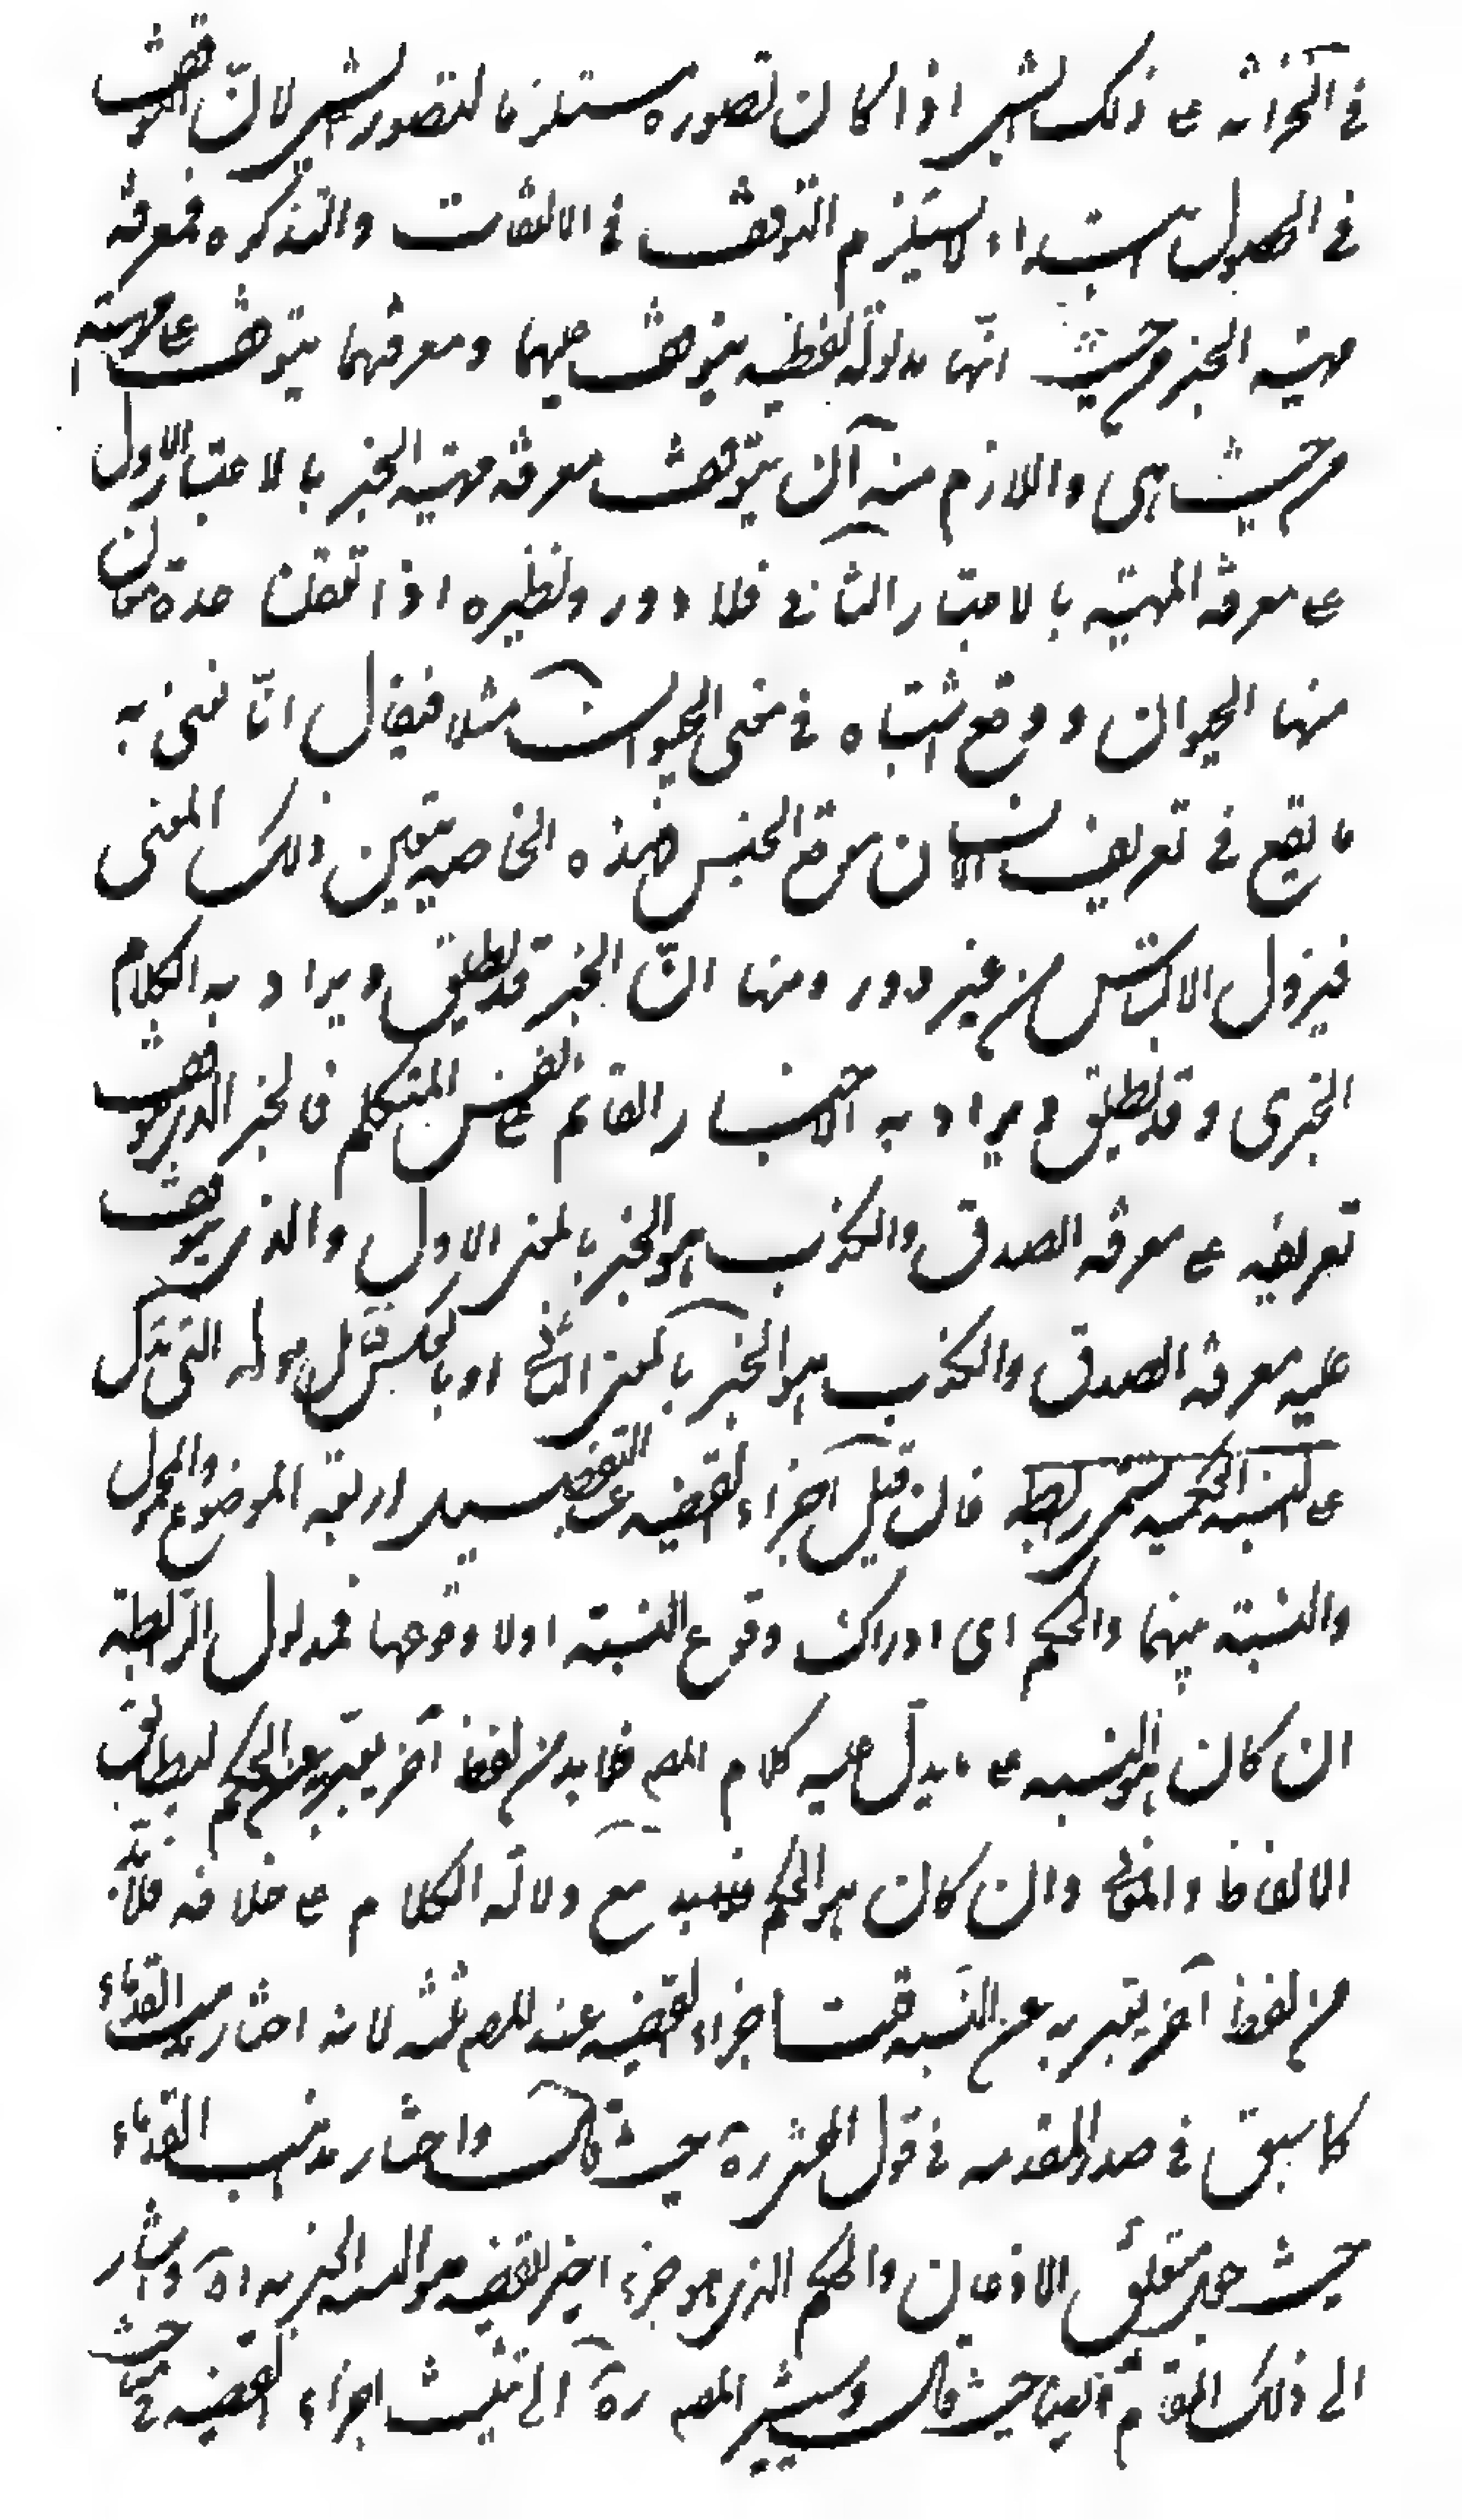 في الخزانة على ذلك الشيء اذا كان تصوره مستلزما لتصور الشيء لان التوقف
في الحصول ابتداء لا يستلزم التوقف في الالتفات والتذكر فمعرفة
مهية الخبر من حيث انها مدلولة لفظية يتوقف عليهما ومعرفتهما يتوقف على مهيته
من حيث هى واللازم منه ان يتوقف معرفة مهية الخبر بالاعتبار الاول
على معرفة المهية بالاعتبار الثاني فلا دور ونظيره اذا تعقلنا عدة معان
منها الحيوان ووقع اشتباه في معنى الحيوان مثلا فيقال انا نعني به
ما يقع في تعريف الانسان موقع الجنس فهذه الخاصية يتعين ذلك المعنى
فيزول الالتباس من غير دور ومنها ان الخبر قد يطلق ويراد به الكلام
الخبرى وقد يطلق ويراد به الاخبار القائم بنفس المتكلم فالخبر الذي يتوقف
تعريفه على معرفة الصدق والكذب هو الخبر بالمعنى الاول والذي يتوقف
عليه معرفة الصدق والكذب هو الخبر بالمعنى الثاني او بالعكس قوله التي تدل
على النسبة الحكمية تسمى رابطة فان قيل اجزاء القضية عند التفصيل اربعة الموضوع والمحمول
والنسبة بينهما والحكم اى ادراك وقوع النسبة اولا وقوعها فمدلول الرابطة
ان كان هو النسبة على ما يدل عليه كلام المص فلا بد من لفظ آخر يعبر به عن الحكم ليطابق
الالفاظ والمعاني وان كان هو الحكم مع دلالة الكلام على خلافه فلا بد
من لفظ آخر يعبر به عن النسبة قلت اجزاء القضية عند المص ثلثة لانه اختار مذهب القدماء
كما سبق في صدر المقدمة في قول المحشي ره حيث قال واختار مذهب القدماء
حيث جعل متعلق الاذعان والحكم الذي هو جزء اخير للقضية هو النسبة الخبرية اه واشار
الى ذلك المقام ايضا حيث قال ويشير المص ره الى تثليث اجزاء القضية في حيث